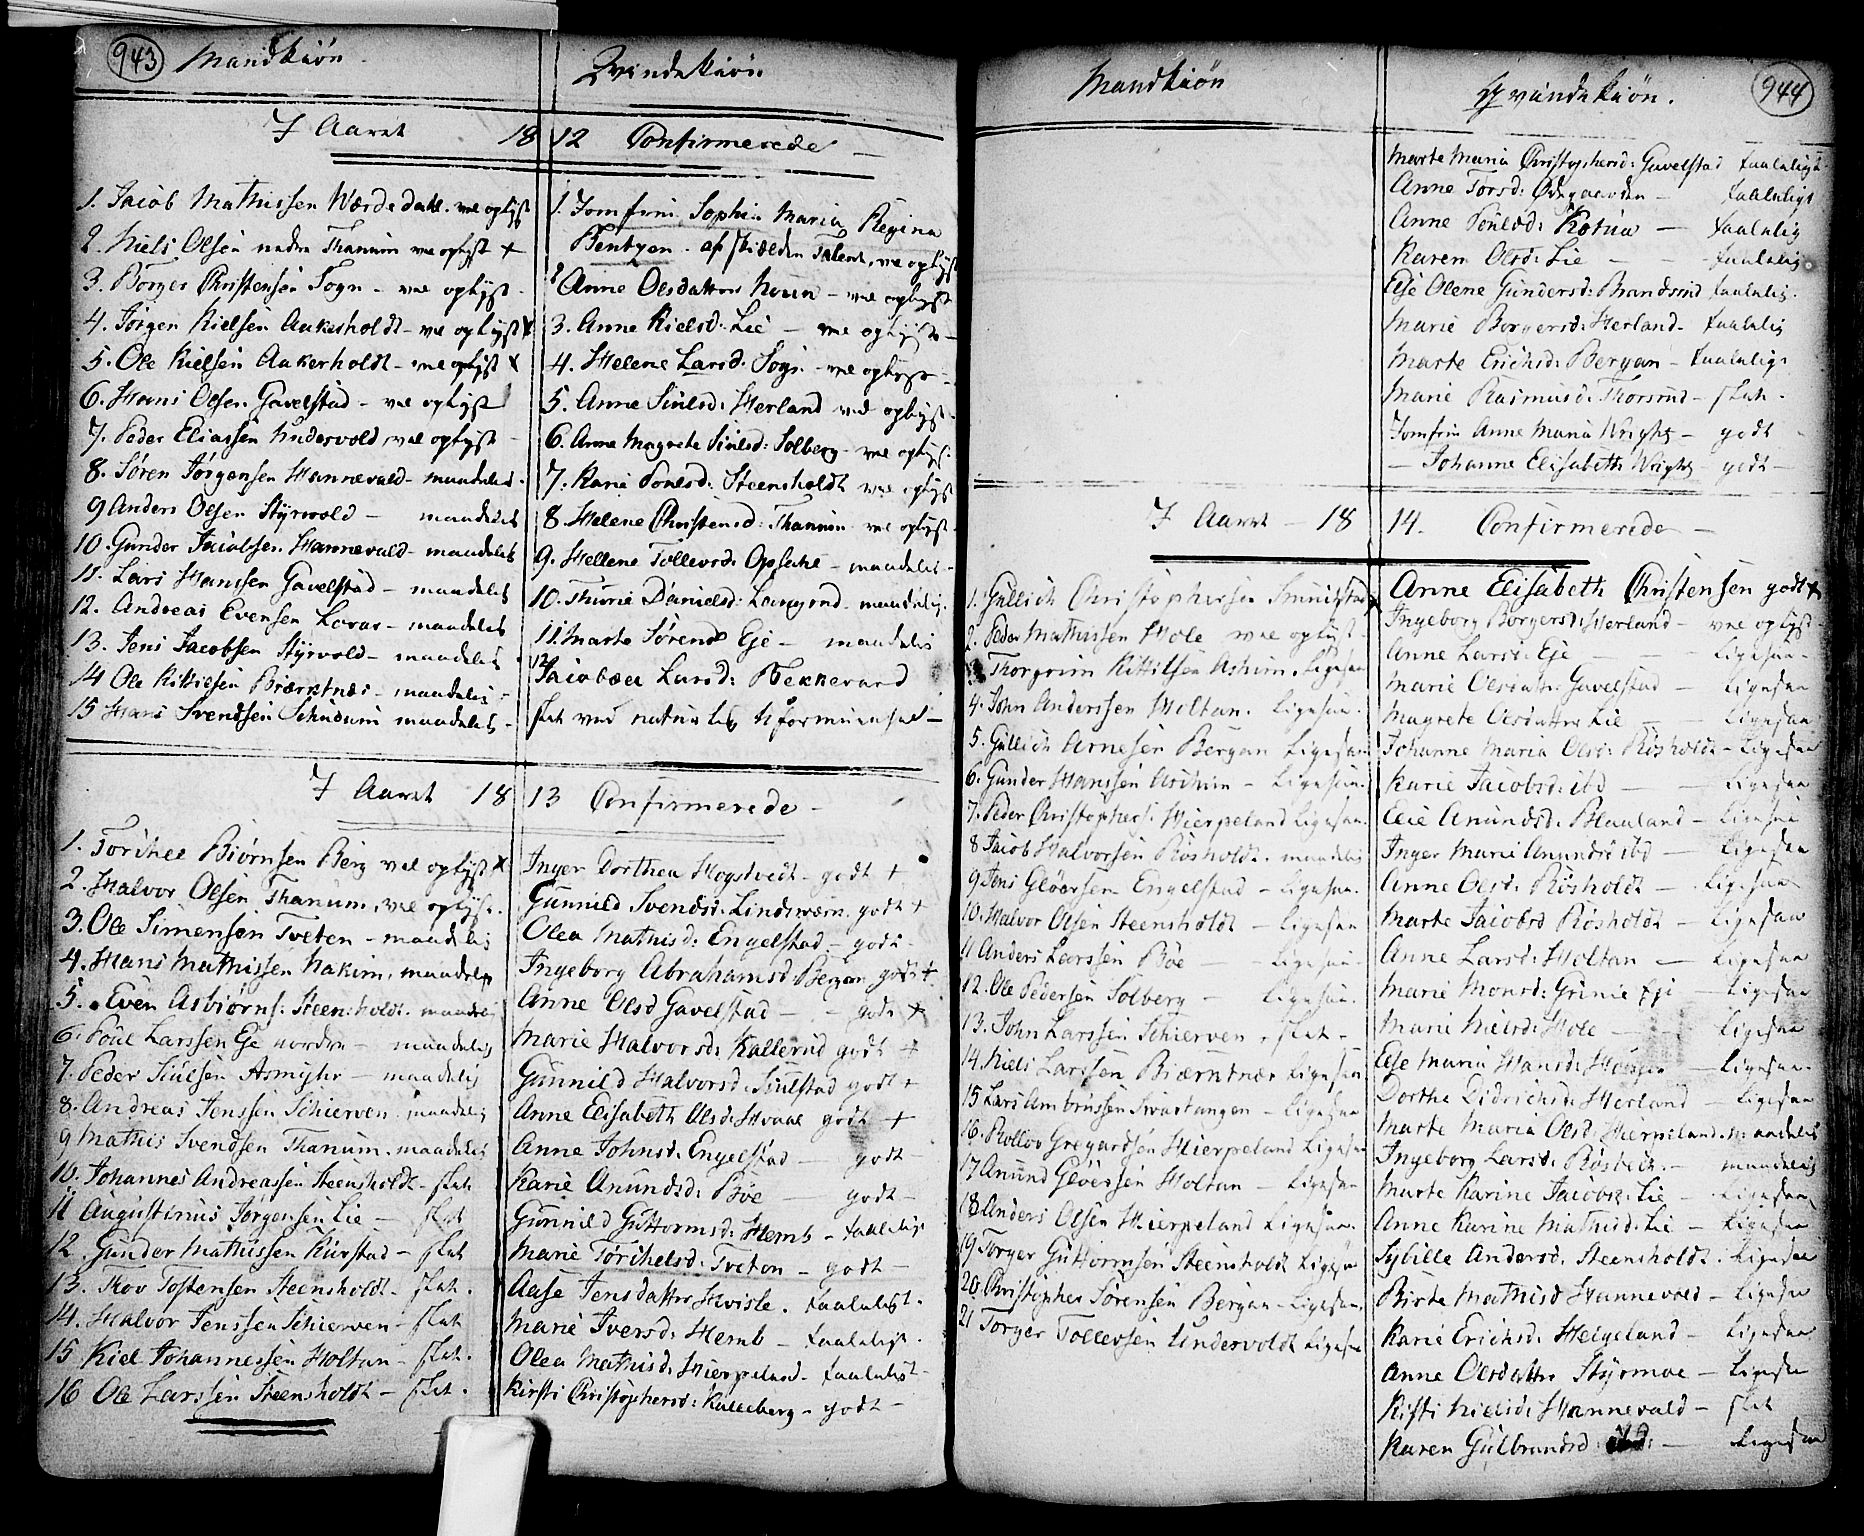 943 Mandkiøn
Qvindekiøn
I Aaret 1812 Confirmerede
1. Jacob Mathissen Wærdedahl. vel oplyst
2. Niels Olsen nedre Thanum vel oplyst +
3. Borger Christensen Sogn - vel oplyst -
4. Jørgen Nielsen Aakerholdt - vel oplyst +
5. Ole Nielsen Aakerholdt - vel oplyst +
6. Hans Olsen Gavelstad - vel oplyst
7. Peder Eliassen Undersvold vel oplyst -
8. Søren Jørgensen Hannevald - maadelig.
9 Anders Olsen Styrvold - maadelig
10. Gunder Jacobsen Hannevald - maadelig
11. Lars Hansen Gavelstad - maadelig
12. Andreas Evensen Lovar - maadelig
13. Jens Jacobsen Styrvold - maadelig
14 Ole Kittilsen Biærntnæs - maadelig -
15 Hans Svendsen maadelig -
1. Jomfru Sophia Maria Regina
Bentzen. af skielden Talent, vel oplyst
2 Anne Olsdatter - vel oplyst
3. Anne Nielsd: Lie - vel oplyst -
4. Helene Larsd: Sogn - vel oplyst -
5. Anne Siulsd: Herland vel oplyst -
6. Anne Magrete Siulsd: Solberg - vel oplyst:
7. Karie Povelsd: Steensholdt vel oplyst
8. Helene Christensd: Thanum - vel oplyst -
9. Hellene Tollevsd: Opsahl - maadelig -
10. Thurie Danielsd: Langrød - maadelig.
11. Marte Sørensd Eje - maadelig
12. Jacobæa Larsd: Bekkevard
slet ved naturlig Uformuenhed -
I Aaret 1813 Confirmerede -
1. Torchel Biørnsen Berg vel oplyst +
2. Halvor Olsen Thanum, vel oplyst.
3. Ole Simensen Tveten - maadelig
4. Hans Mathissen Nakim, maadelig
5. Even Asbiørns: Steensholdt. maadelig
6. Povel Larssen Eje nordre - maadelig
7. Peder Siulsen Asmyhr - maadelig
8. Andreas Jenssen Schierven. maadelig
9 Mathis Svendsen Thanum. maadelig
10. Johannes Andreassen Steensholdt - slet
11 Augustinus Jørgensen Lie - slet
12. Gunder Mathissen - slet
13. Rov Tostensen Steensholdt - slet.
14. Halvor Jenssen Schierven - slet
15 Kiel Johannessen Holtan - slet.
16 Ole Larssen Steensholdt - slet.
Inger Dorthea Hogstvedt - godt +
Gunnild Svendsd: Lindsværn. godt +
Olea Mathisd: Engelstad - godt -
Ingeborg Abrahamsd: Bergan godt +
Anne Olsd Gavelstad - - godt +
Marie Halvorsd: Kallerud godt +
Gunnild Halvorsd: Siulstad godt +
Anne Elisabeth Olsd: Hvaal godt +
Anne Johnsd: Engelstad - godt -
Karie Anundsd: Bøe - godt -
Gunnild Guttormsd: Hemb - taalelig
Marie Torchelsd: Tveton - godt -
Aase Jensdatter Hvisle. taaleligt.
Marie Iversd: Hemb - taaleligt.
Olea Mathisd: Hierpeland - taaleligt -
Kirsti Christophersd: Kalleberg - godt -
Mandkiøn
Qvindekiøn. 944
Marte Maria Christophersd: Gavelstad taaleligt
Anne Torsd: Ødegaarden - taaleligt
Anne Povelsd: - taalelig
Karen Olsd: Lie - - taalelig
Else Olene Gundersd: Brandsrud taalelig.
Marie Borgersd: Herland - taalelig
Marte Erichsd: Bergan - taalelig.
Marie Rasmusd: Thorsrud - slet.
Jomfru Anne Maria Wright - godt -
- Johanne Elisabeth Wright - godt -
I Aaret - 1814. Confirmerede -
1. Gullich Christophersen +
2. Peder Mathissen Hole vel oplyst -
3. Thorgrim Kittilsen Askim. Ligesaa
4. John Anderssen Holtan. Ligesaa.
5. Gullich Arnesen Bergan Ligesaa
6. Gunder Hanssen Aschim - Ligesaa.
7. Peder Christophers: Hierpeland Ligesaa.
8 Jacob Halvorsen Røsholdt. maadelig
9 Jens Gløersen Engelstad - Ligesaa.
10. Halvor Olsen Steensholdt - Ligesaa
11 Anders Larssen Bøe - Ligesaa.
12. Ole Pedersen Solberg - Ligesaa.
13. John Larssen Schierven - slet -
14. Niels Larssen Biærntnæs Ligesaa
15 Lars Ambrussen Svartangen - Ligesaa
16. Rollov Gregardsen Hierpeland Ligesaa
17 Anund Gløersen Holtan - Ligesaa
18 Anders Olsen Hierpeland Ligesaa.
19 Torger Guttormsen Steensholdt Ligesaa
20. Christopher Sørensen Bergan - Ligesaa.
21 Torger Tollevsen Undervoldt Ligesaa
Anne Elisabeth Christensen godt +
Ingeborg Borgersd: Herland - vel oplyst -
Anne Larsd: Eje - - Ligesaa -
Marie Olsdatr: Gavelstad - Ligesaa
Magrete Olsdatter Lie - - Ligesaa
Johanne Maria Olsd: Røsholdt - Ligesaa
Karie Jacobsd: ibd - - Ligesaa
Elie Anundsd: Blaaland - Ligesaa
Inger Marie Anundsd ibd - Ligesaa
Anne Olsd: Røsholdt - Ligesaa
Marte Jacobsd Røsholdt - Ligesaa
Anne Larsd: Holtan - Ligesaa
Marie Monsd: Grinie Eje - Ligesaa
Marie Nielsd: Hole - - Ligesaa
Else Maria Hansd: - Ligesaa.
Dorthe Didrichsd: Herland - Ligesaa
Marte Maria Olsd: Hierpeland. maadelig
Ingeborg Larsd: - maadelig
Marte Karine Jacobsd: Lie - Ligesaa
Anne Karine Mathisd: Lie - Ligesaa
Sybille Andersd: Steensholdt. Ligesaa
Birte Mathisd Hannevold - Ligesaa
Karie Erichsd: Helgeland - Ligesaa
Anne Olsdatter Styrmoe - Ligesaa
Kisti Nielsd: Hannevald - slet
Karen Gulbrandsd: - Ligesaa